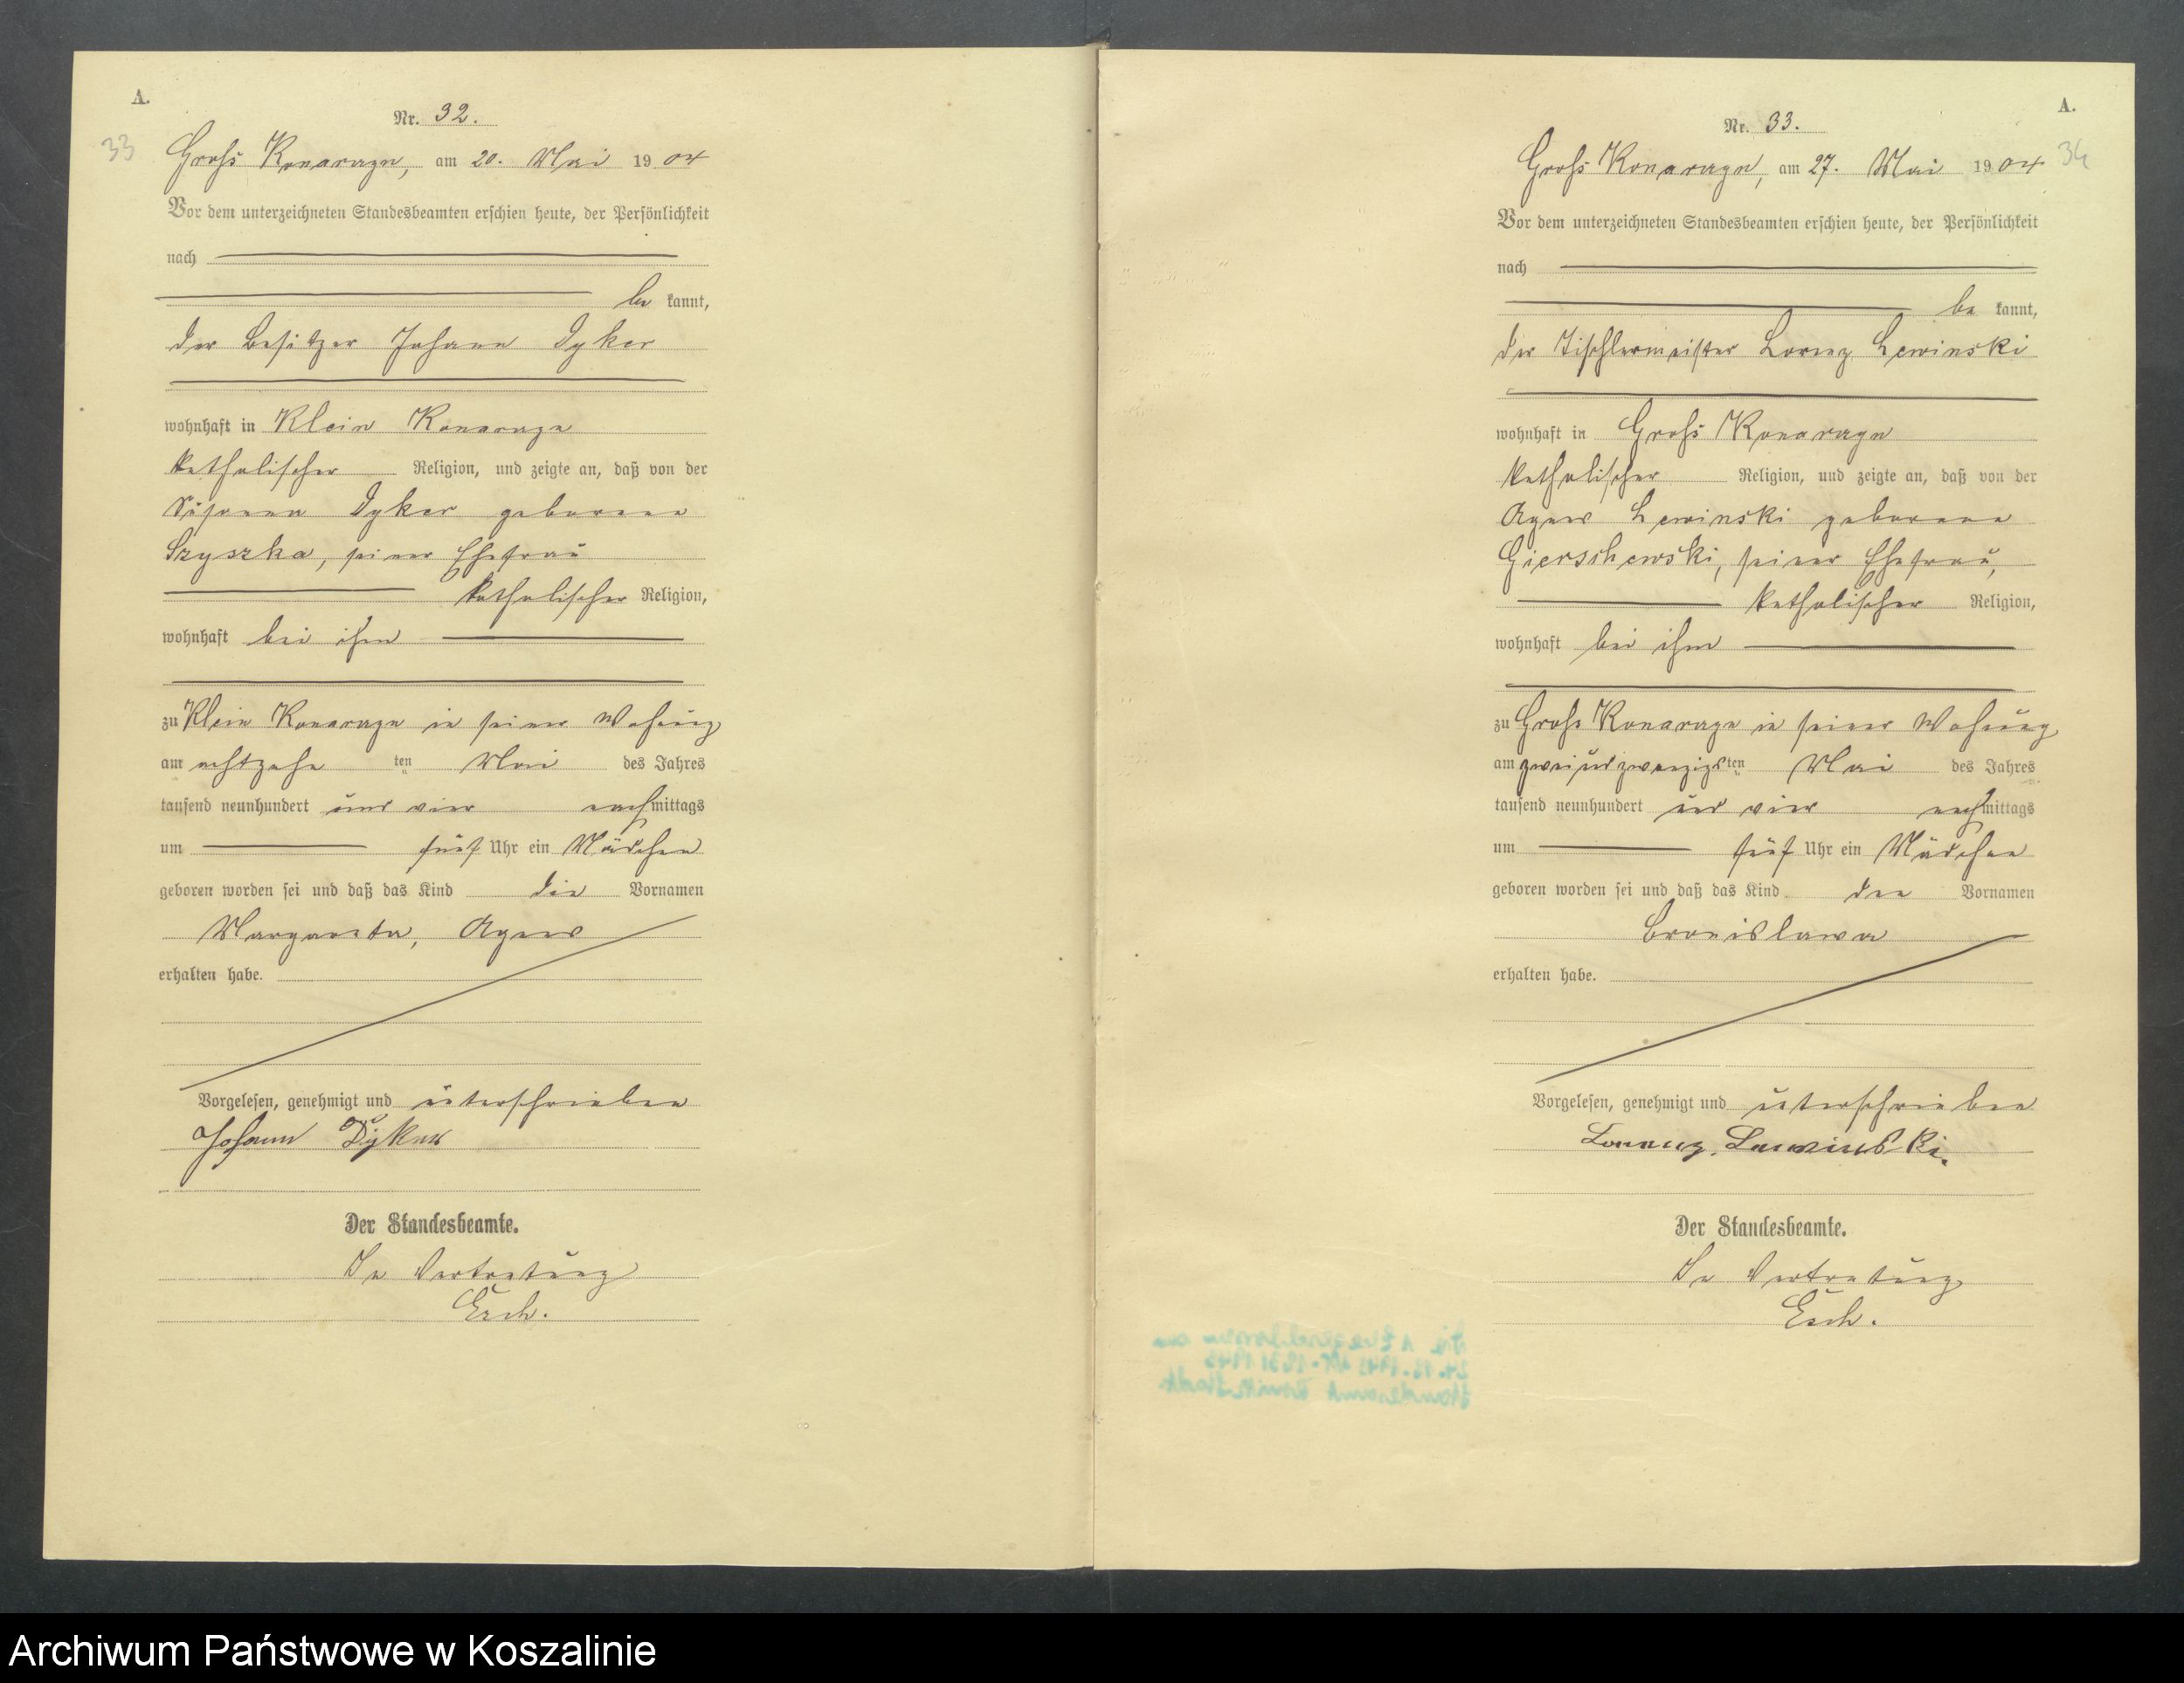 A.
Nr. 32.
33
Groß Konarzyn, am 20. Mai 1904
Vor dem unterzeichneten Standesbeamten erschien heute, der Persönlichkeit
nach
be kannt,
der Besitzer Johann Dyker
wohnhaft in Klein Konarzyn
katholischer Religion, und zeigte an, daß von der
Susanna Dyker geborene
Szyszka, seiner Ehefrau
katholischer Religion,
wohnhaft bei ihm
zu Klein Konarzyn in seiner Wohnung
am achtzehn ten Mai des Jahres
tausend neunhundert und vier nachmittags
um fünf Uhr ein Mädchen
geboren worden sei und daß das Kind die Vornamen
Margareta, Agnes
erhalten habe.
Vorgelesen, genehmigt und unterschrieben
Johann Dyker
Der Standesbeamte.
In Vertretung
Esch.
A.
Nr. 33.
34
Groß Konarzyn, am 27. Mai 1904
Vor dem unterzeichneten Standesbeamten erschien heute, der Persönlichkeit
nach
be kannt,
der Tischlermeister Lorenz Lewinski
wohnhaft in Groß Konarzyn
katholischer Religion, und zeigte an, daß von der
Agnes Lewinski geborene
Gierschewski, seiner Ehefrau,
katholischer Religion,
wohnhaft bei ihm
zu Groß Konarzyn in seiner Wohnung
am zweiundzwanzigsten Mai des Jahres
tausend neunhundert und vier nachmittags
um fünf Uhr ein Mädchen
geboren worden sei und daß das Kind den Vornamen
Bronislawa
erhalten habe.
Vorgelesen, genehmigt und unterschrieben
Lorenz Lewinski.
Der Standesbeamte.
In Vertretung
Esch.
Archiwum Państwowe w Koszalinie